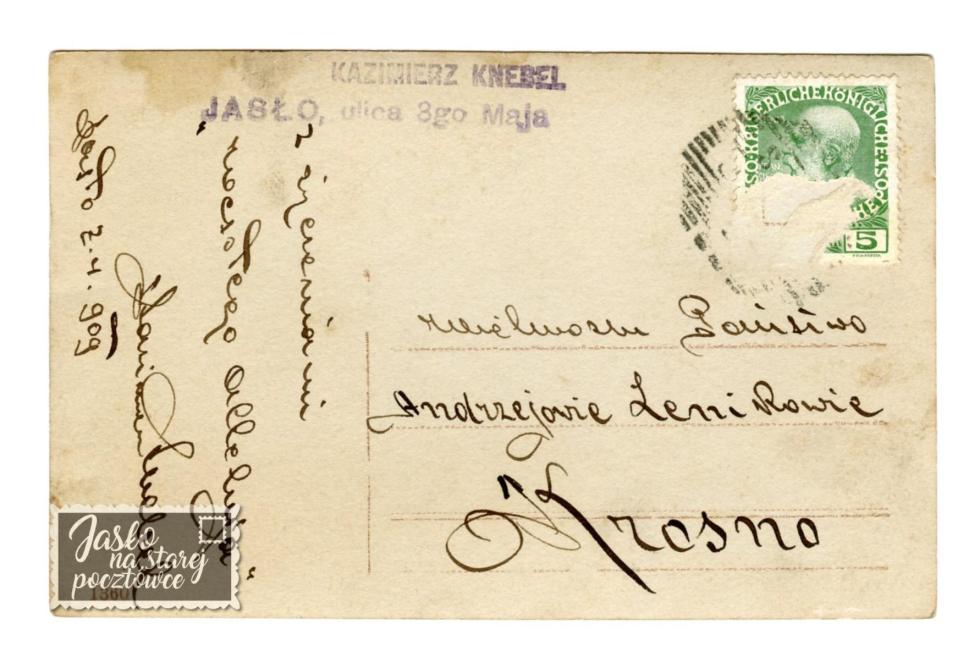 KAZIMIERZ KNEBEL
JASŁO, ulica 3go Maja
KAISERLICHE KÖNIGLICHE
5
z życzeniami
"wesołego Alleluja"
Jasło 2.4.909
Państwo
Andrzejowie Lenikowie
Krosno
Jasło
na starej
pocztówce
1360